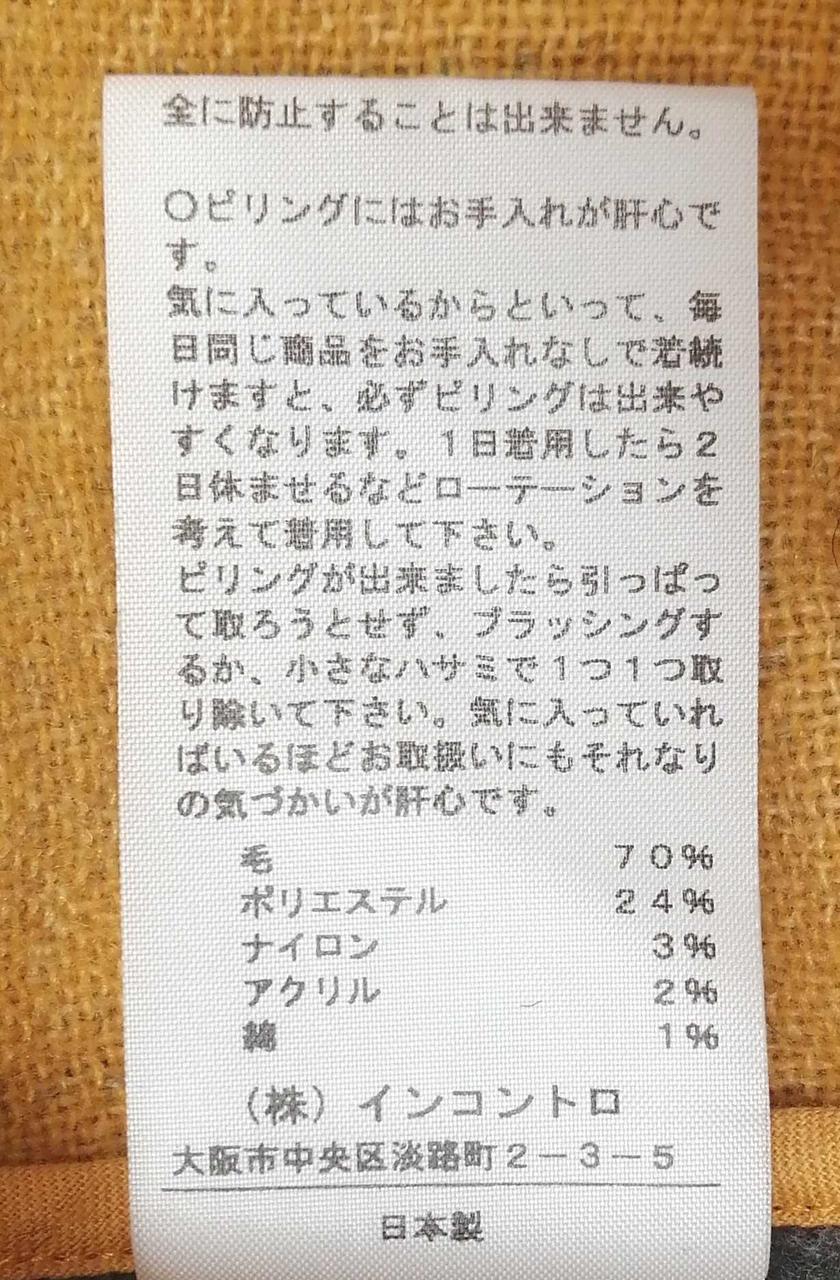 全に防止することは出来ません。
〇ピリングにはお手入れが肝心で
す。
気に入っているからといって、毎
日同じ商品をお手入れなしで着続
けますと、必ずピリングは出来や
すくなります。１日着用したら２
日休ませるなどローテーションを
考えて着用して下さい。
ピリングが出来ましたら引っぱっ
て取ろうとせず、ブラッシングす
るか、小さなハサミで１つ１つ取
り除いて下さい。気に入っていれ
ばいるほどお取扱いにもそれなり
の気づかいが肝心です。
毛 ７０％
ポリエステル ２４％
ナイロン ３％
アクリル ２％
綿 １％
（株）インコントロ
大阪市中央区淡路町２－３－５
日本製